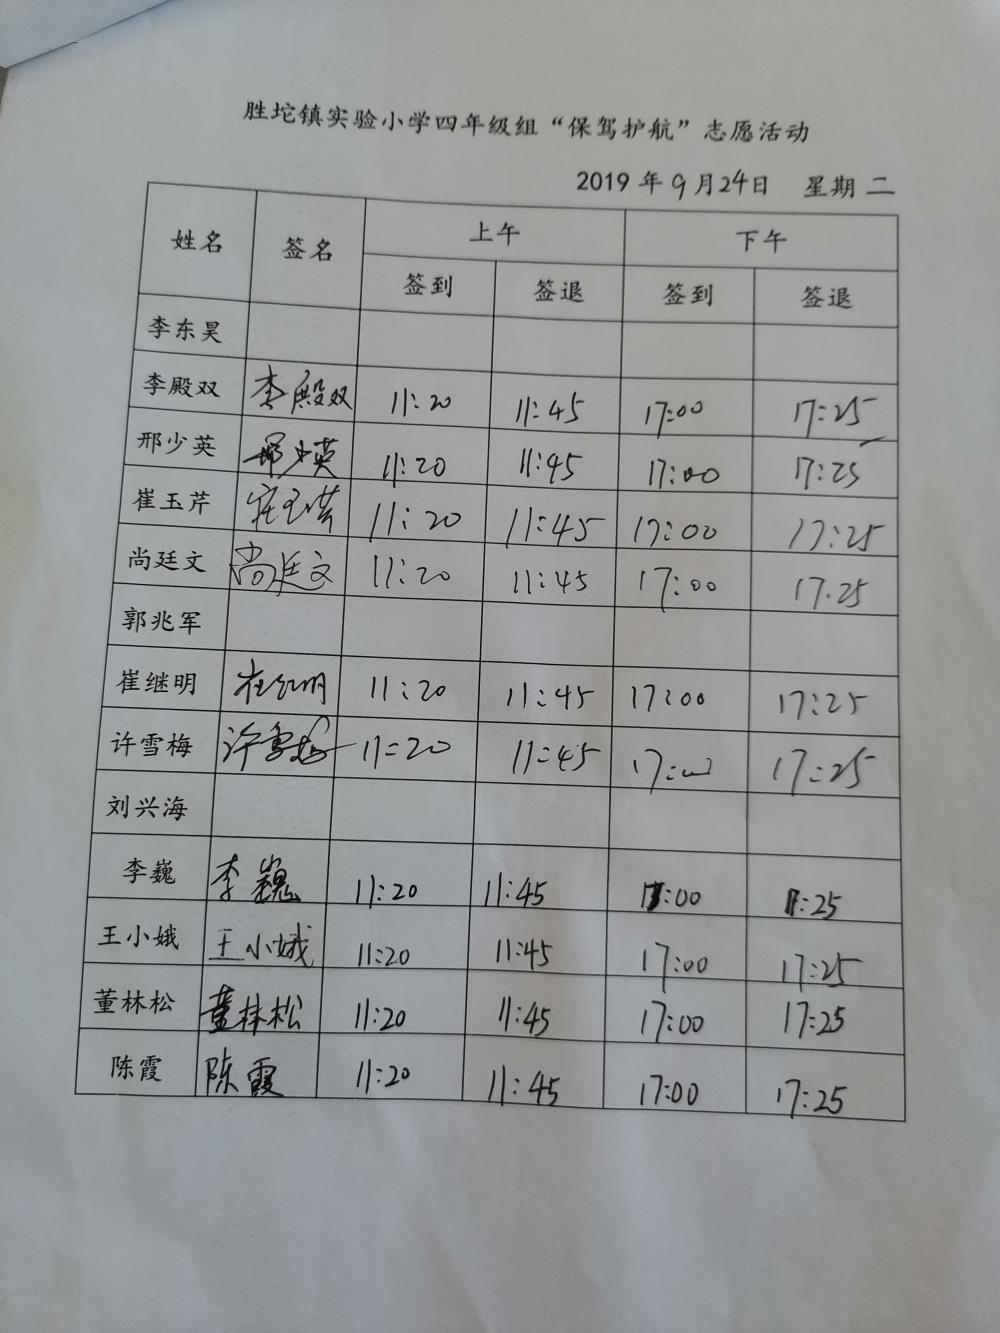 胜坨镇实验小学四年级组“保驾护航”志愿活动
2019 年 9 月 24 日 星期 二
姓名 签名 上午 下午
签到 签退 签到 签退
李东昊
李殿双 李殿双 11:20 11:45 17:00 17:25
邢少英 邢少英 11:20 11:45 17:00 17:25
崔玉芹 崔玉芹 11:20 11:45 17:00 17:25
尚廷文 尚廷文 11:20 11:45 17:00 17.25
郭兆军
崔继明 崔继明 11:20 11:45 17:00 17:25
许雪梅 许雪梅 11:20 11:45 17:00 17:25
刘兴海
李巍 李巍 11:20 11:45 17:00 17:25
王小娥 王小娥 11:20 11:45 17:00 17:25
董林松 董林松 11:20 11:45 17:00 17:25
陈霞 陈霞 11:20 11:45 17:00 17:25